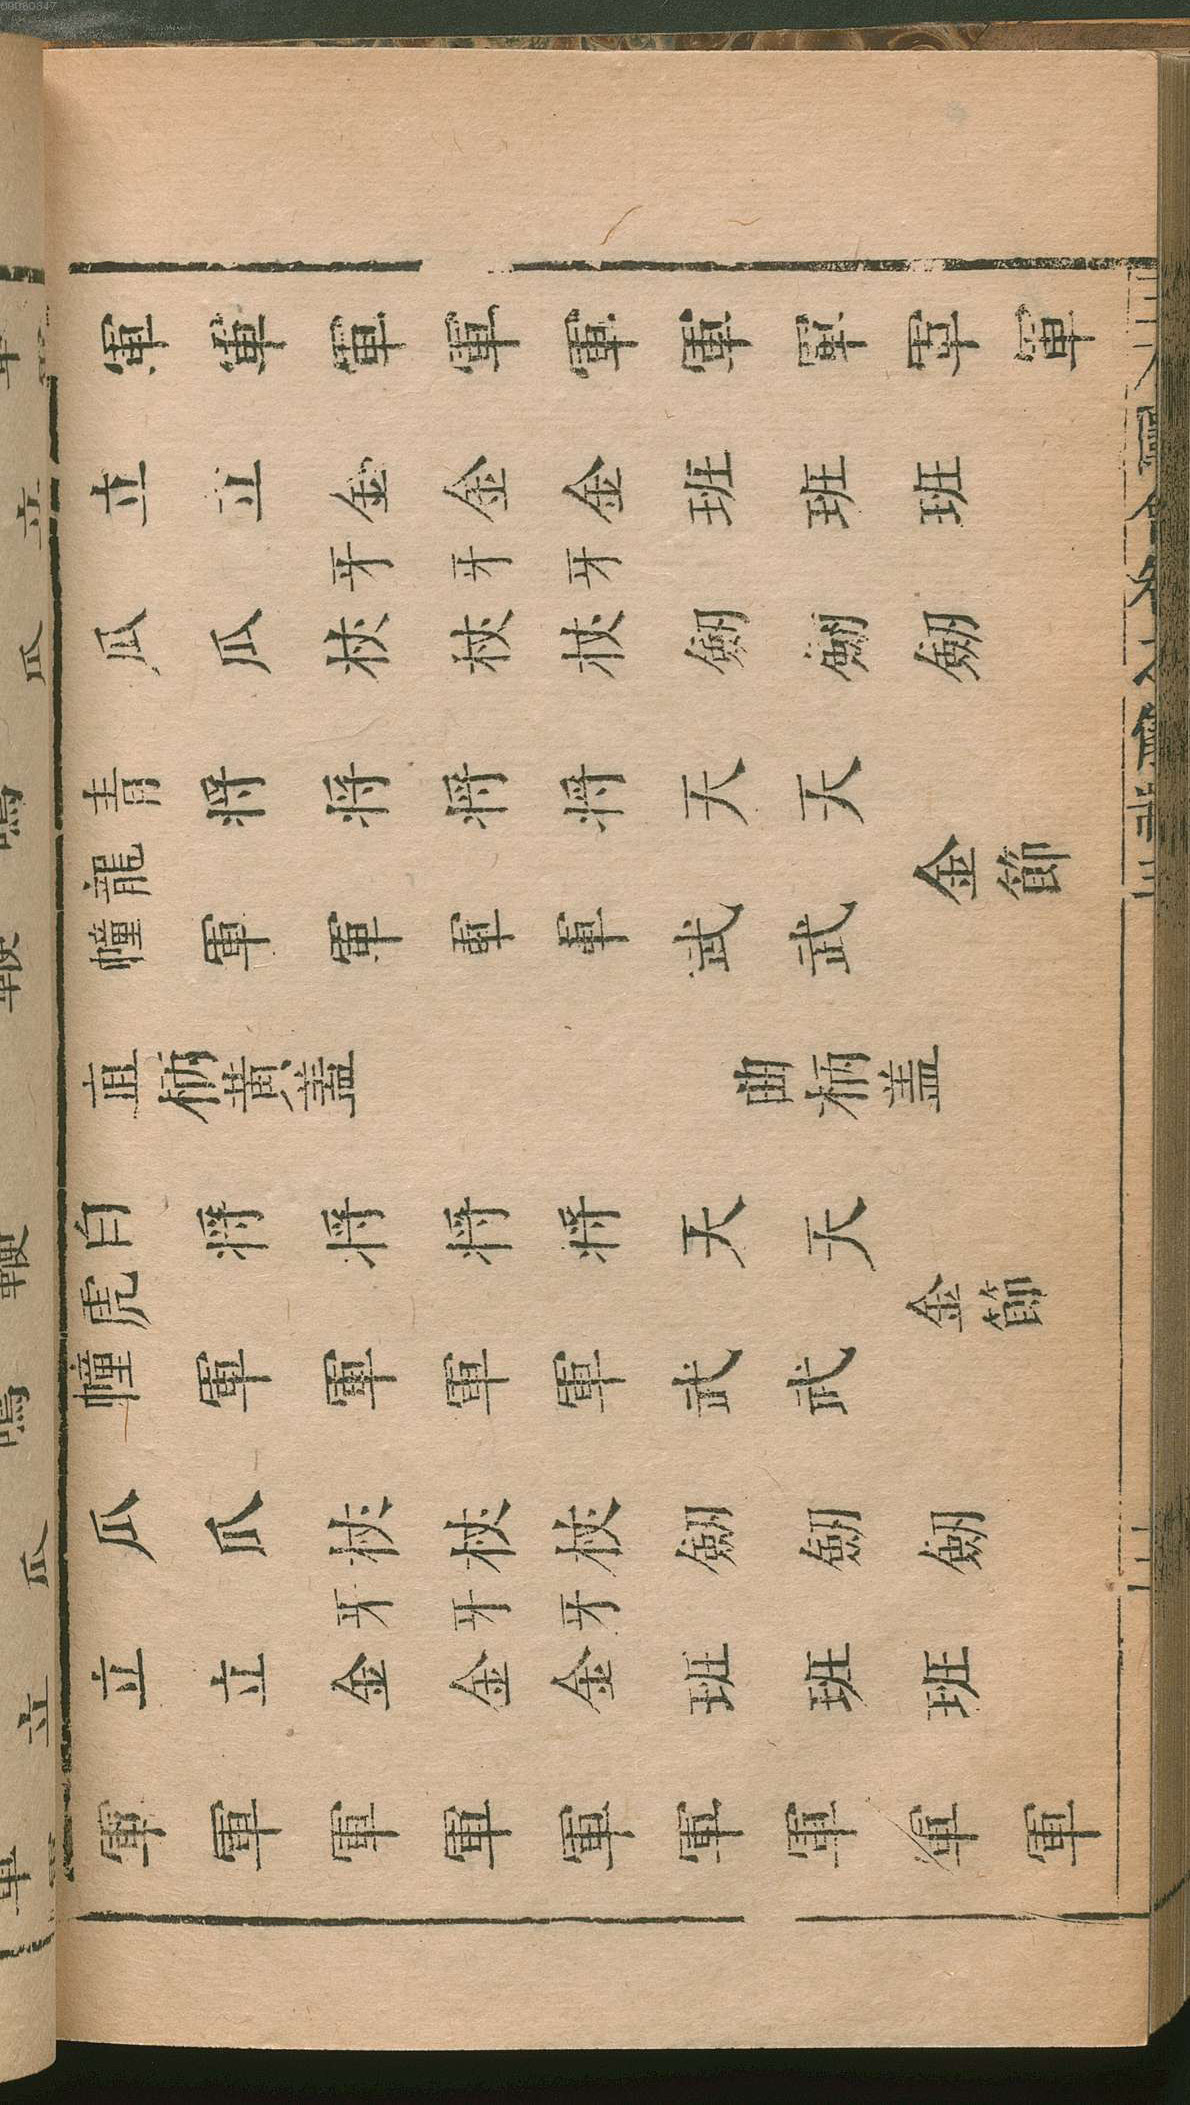 軍 立 瓜 青龍幢 直柄黄盖 白虎幢 瓜 立 軍
軍 立 瓜 将軍 将軍 瓜 立 軍
軍 金牙杖 将軍 将軍 杖牙金 軍
軍 金牙杖 将軍 将軍 杖牙金 軍
軍 金牙杖 将軍 将軍 杖牙金 軍
軍 班劒 天武 曲柄盖 天武 劒班 軍
軍 班劒 天武 天武 劒班 軍
軍 班劒 金節 金節 劒班 軍
軍 軍